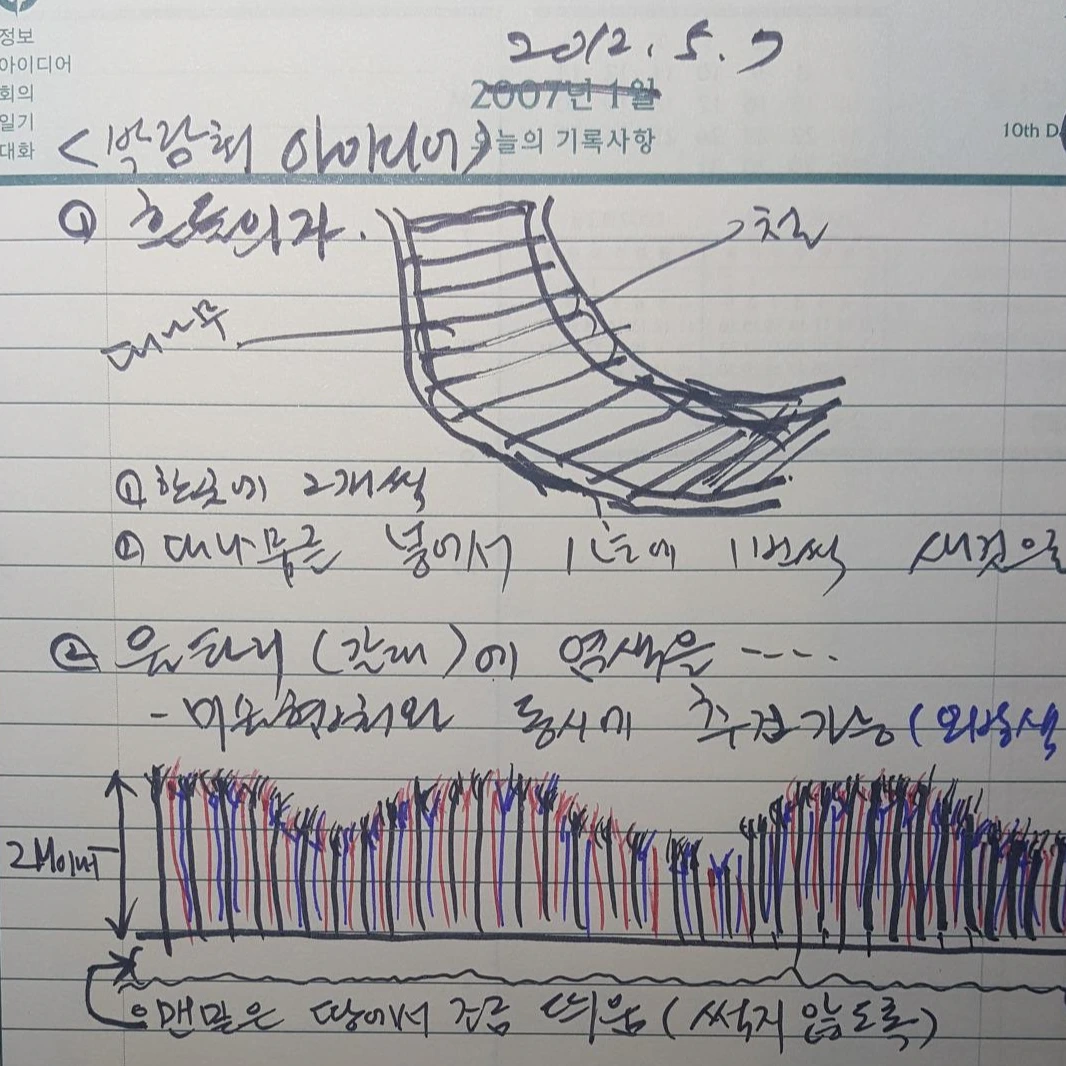 정보
아이디어
회의
일기
대화
2012. 5. 7
2007년 1월
오늘의 기록사항
10th D
<박람회 아이디어>
① 흔들의자.
대나무
① 한곳에 2개씩
② 대나무를 넣어서 1년에 1번씩 새것으로
② 울타리 (갈대)에 염색을 ----.
- 미술협회와 동시에 추검가능 (
2M이내
맨밑은 땅에서 조금 띄움 (썩지 않도록)